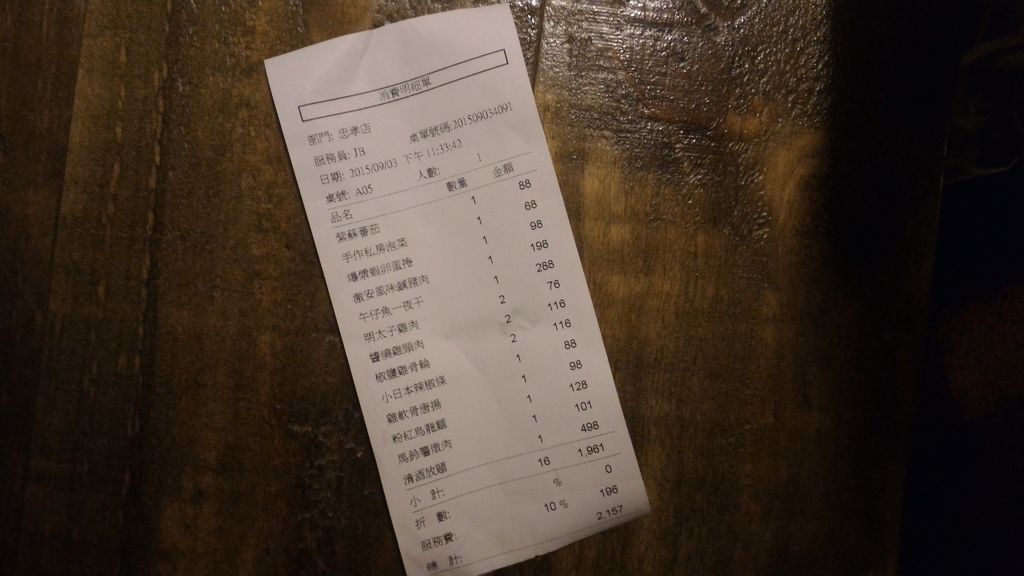 消費明細單
部門: 忠孝店
服務員: JB 桌單號碼:201509034091
日期: 2015/09/03 下午 11:33:42
桌號: A05 人數: 1
品名 數量 金額
紫蘇蕃茄 1 88
手作私房泡菜 1 68
爆漿蝦卵蛋捲 1 98
激安風味鹹豬肉 1 198
午仔魚一夜干 1 288
明太子雞肉 2 76
醬燒雞頸肉 2 116
椒鹽雞骨輪 2 116
小日本辣椒條 1 88
雞軟骨唐揚 1 98
粉紅烏龍麵 1 128
馬鈴薯燉肉 1 101
清酒放題 1 498
小 計: 16 1,961
折 數: % 0
服務費: 10 % 196
總 計: 2,157